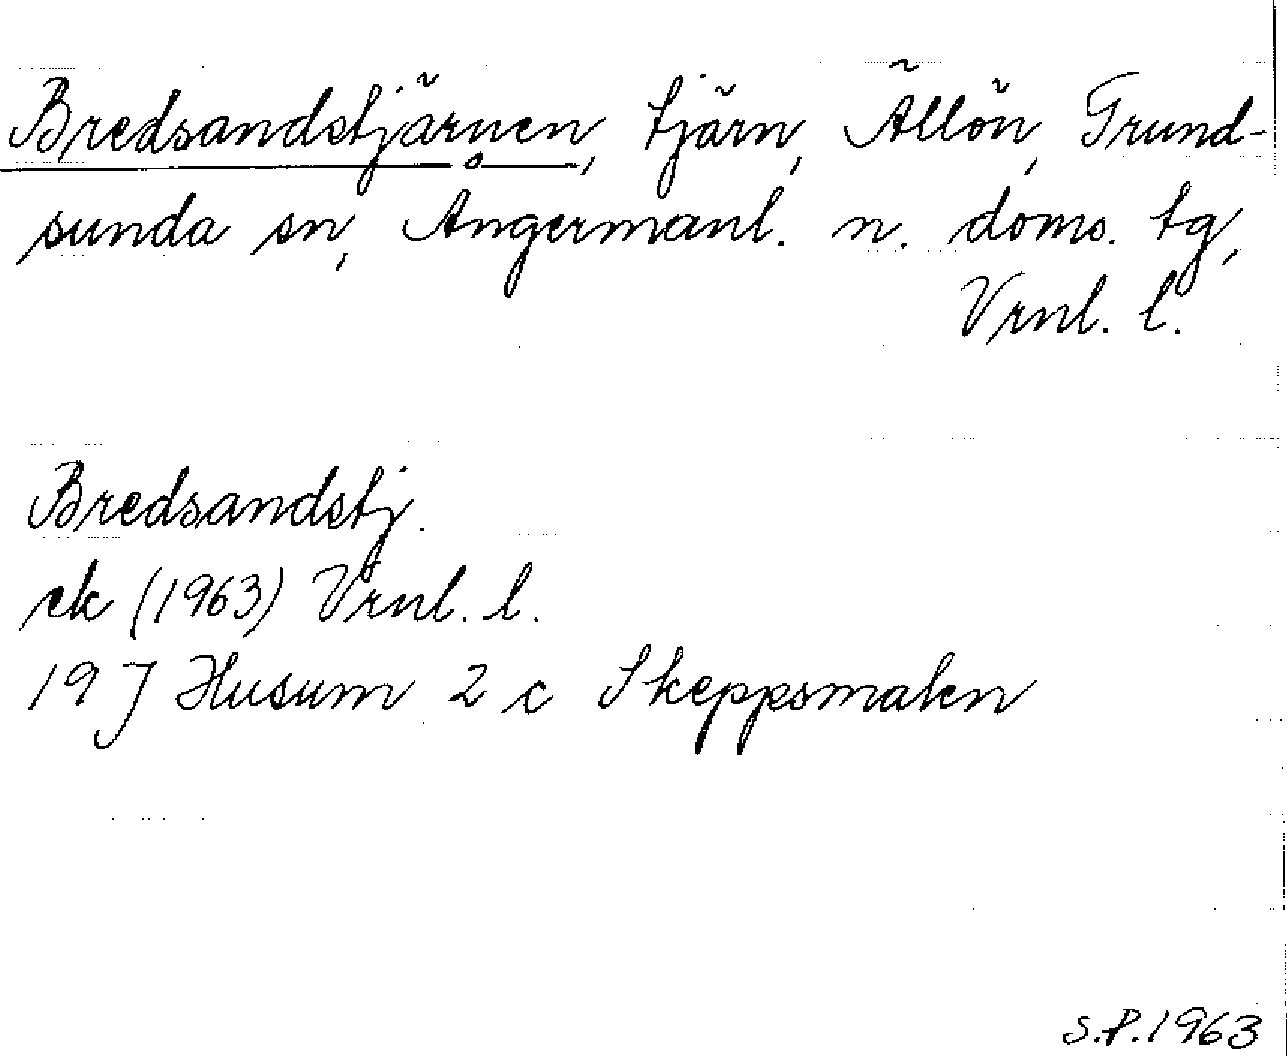 Bredsandstjärnen, tjärn, Ällön, Grund-
sunda sn, Ångermanl. n. doms. tg,
Vrnl. l.
Bredsandstj.
ek (1963) Vrnl. l.
19 J Husum 2 c Skeppsmalen
S.P. 1963